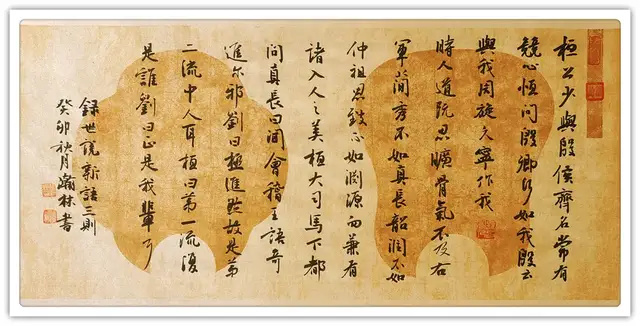 桓公少與殷侯齊名常有
競心桓問殷卿何如我殷云
與我周旋久寧作我
時人道阮思曠骨氣不及右
軍簡秀不如真長韶潤不如
仲祖思致不如淵源而兼有
諸人之美桓大司馬下都
問真長曰聞會稽王語奇
進尔邪劉曰極進然故是第
二流中人耳桓曰第一流復
是誰劉曰正是我輩耳
録世說新語三則
癸卯秋月瀚林書